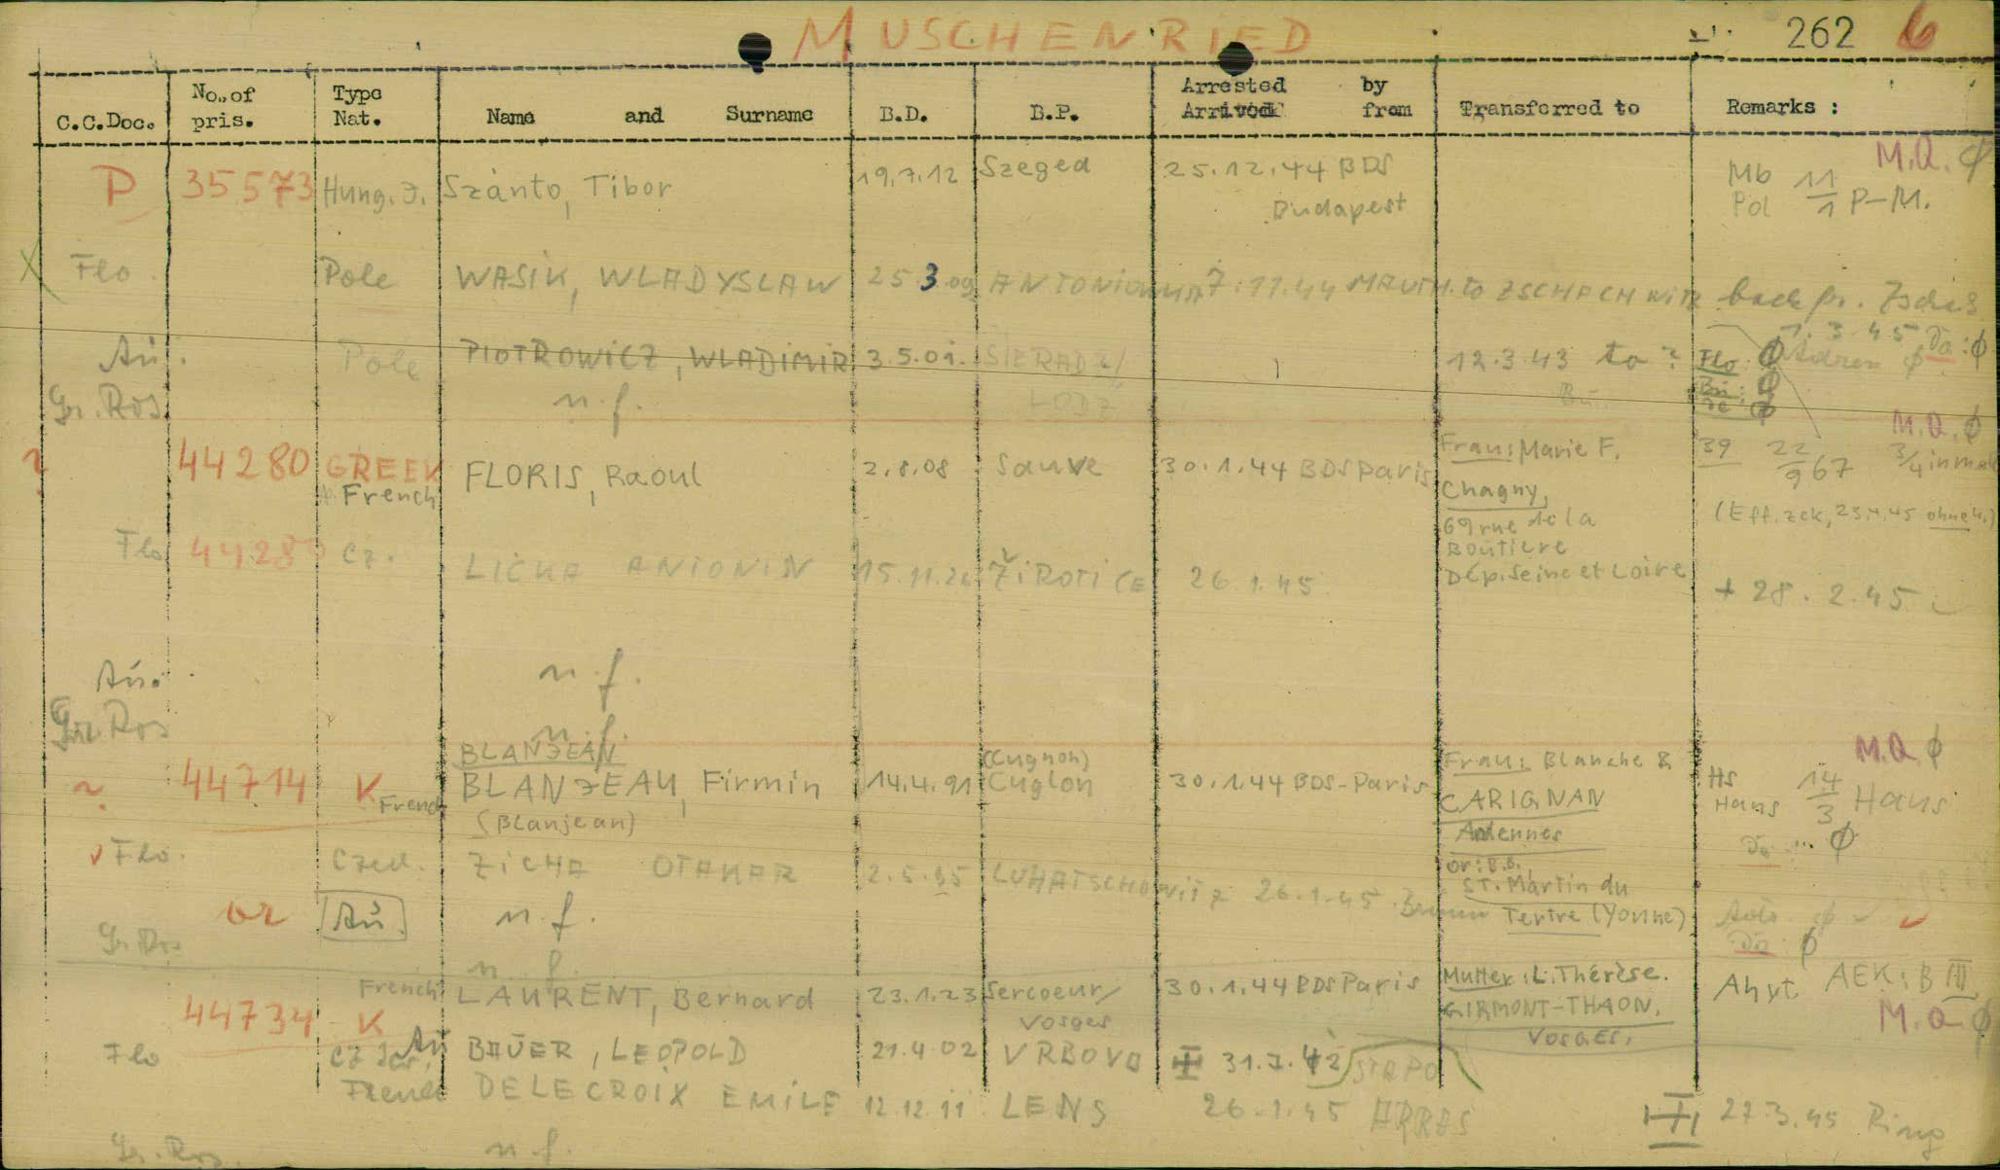 MUSCHENRIED 262 6
C.C.Doc. No. of pris. Type Nat. Name and Surname B.D. B.P. Arrested by Arrived from Transferred to Remarks :
P 35573 Hung. J. Szánto, Tibor 19.7.12 Szeged 25.12.44 BDS Budapest Mb Pol 11/1 P-M. M.Q. ϕ
X Flo. Pole WASIK, WLADYSLAW 25 3 09 7.11.44 MAUTH. to ZSCHACHWITZ back fr.
Au. Pole PIOTROWICZ, WLADIMIR 3.5.01. SIERADZ/ LODZ 12.3.43 to ? Flo: ϕ 3.45 Da: ϕ
Gr. Ros. n.f.
? 44280 GREEK French FLORIS, Raoul 2.8.08 Sauve 30.1.44 BDS Paris Frau: Marie F. 39 22/9 67 3/4 M.Q. ϕ
Chagny,
69 rue de la
Boutiere
Dép. Seine et Loire
(Eff. zck, 23.4.45 ohne
Flo 4428 Cz. LICHA ANTONIN 15.11. 26.1.45 + 28.2.45
Au. n.f.
Gr. Ros n.f.
BLANJEAN
? 44714 K French BLANJEAU, Firmin 14.4.91 (Cugnon) Cuglon 30.1.44 BDS-Paris Frau: Blanche B HS Hans 14/3 Hans M.Q ϕ
(Blanjean) CARIGNAN
Ardennes
or: B.B.
St. Martin du
Tertre (Yonne)
Flo. Czech. ZICHA OTAKAR 2.5. LUHATSCHOWITZ 26.1.45 Da ... ϕ
or Au. n.f.
Gr. Ros n.f. Da: ϕ
44734 K French LAURENT, Bernard 23.1.23 Sercoeur/ Vosges 30.1.44 BDS Paris Mutter: L. Thérèse. Ahyt. AEK: B III
GIRMONT-THAON, M.Q ϕ
VOSGES.
Flo Cz Au BAUER, LEOPOLD 21.4.02 VRBOVO 31.7.42 STAPO
French DELECROIX EMILE 12.12.11 LENS 26.1.45 ARRAS 27.3.45 Ring
Gr. Ros. n.f.